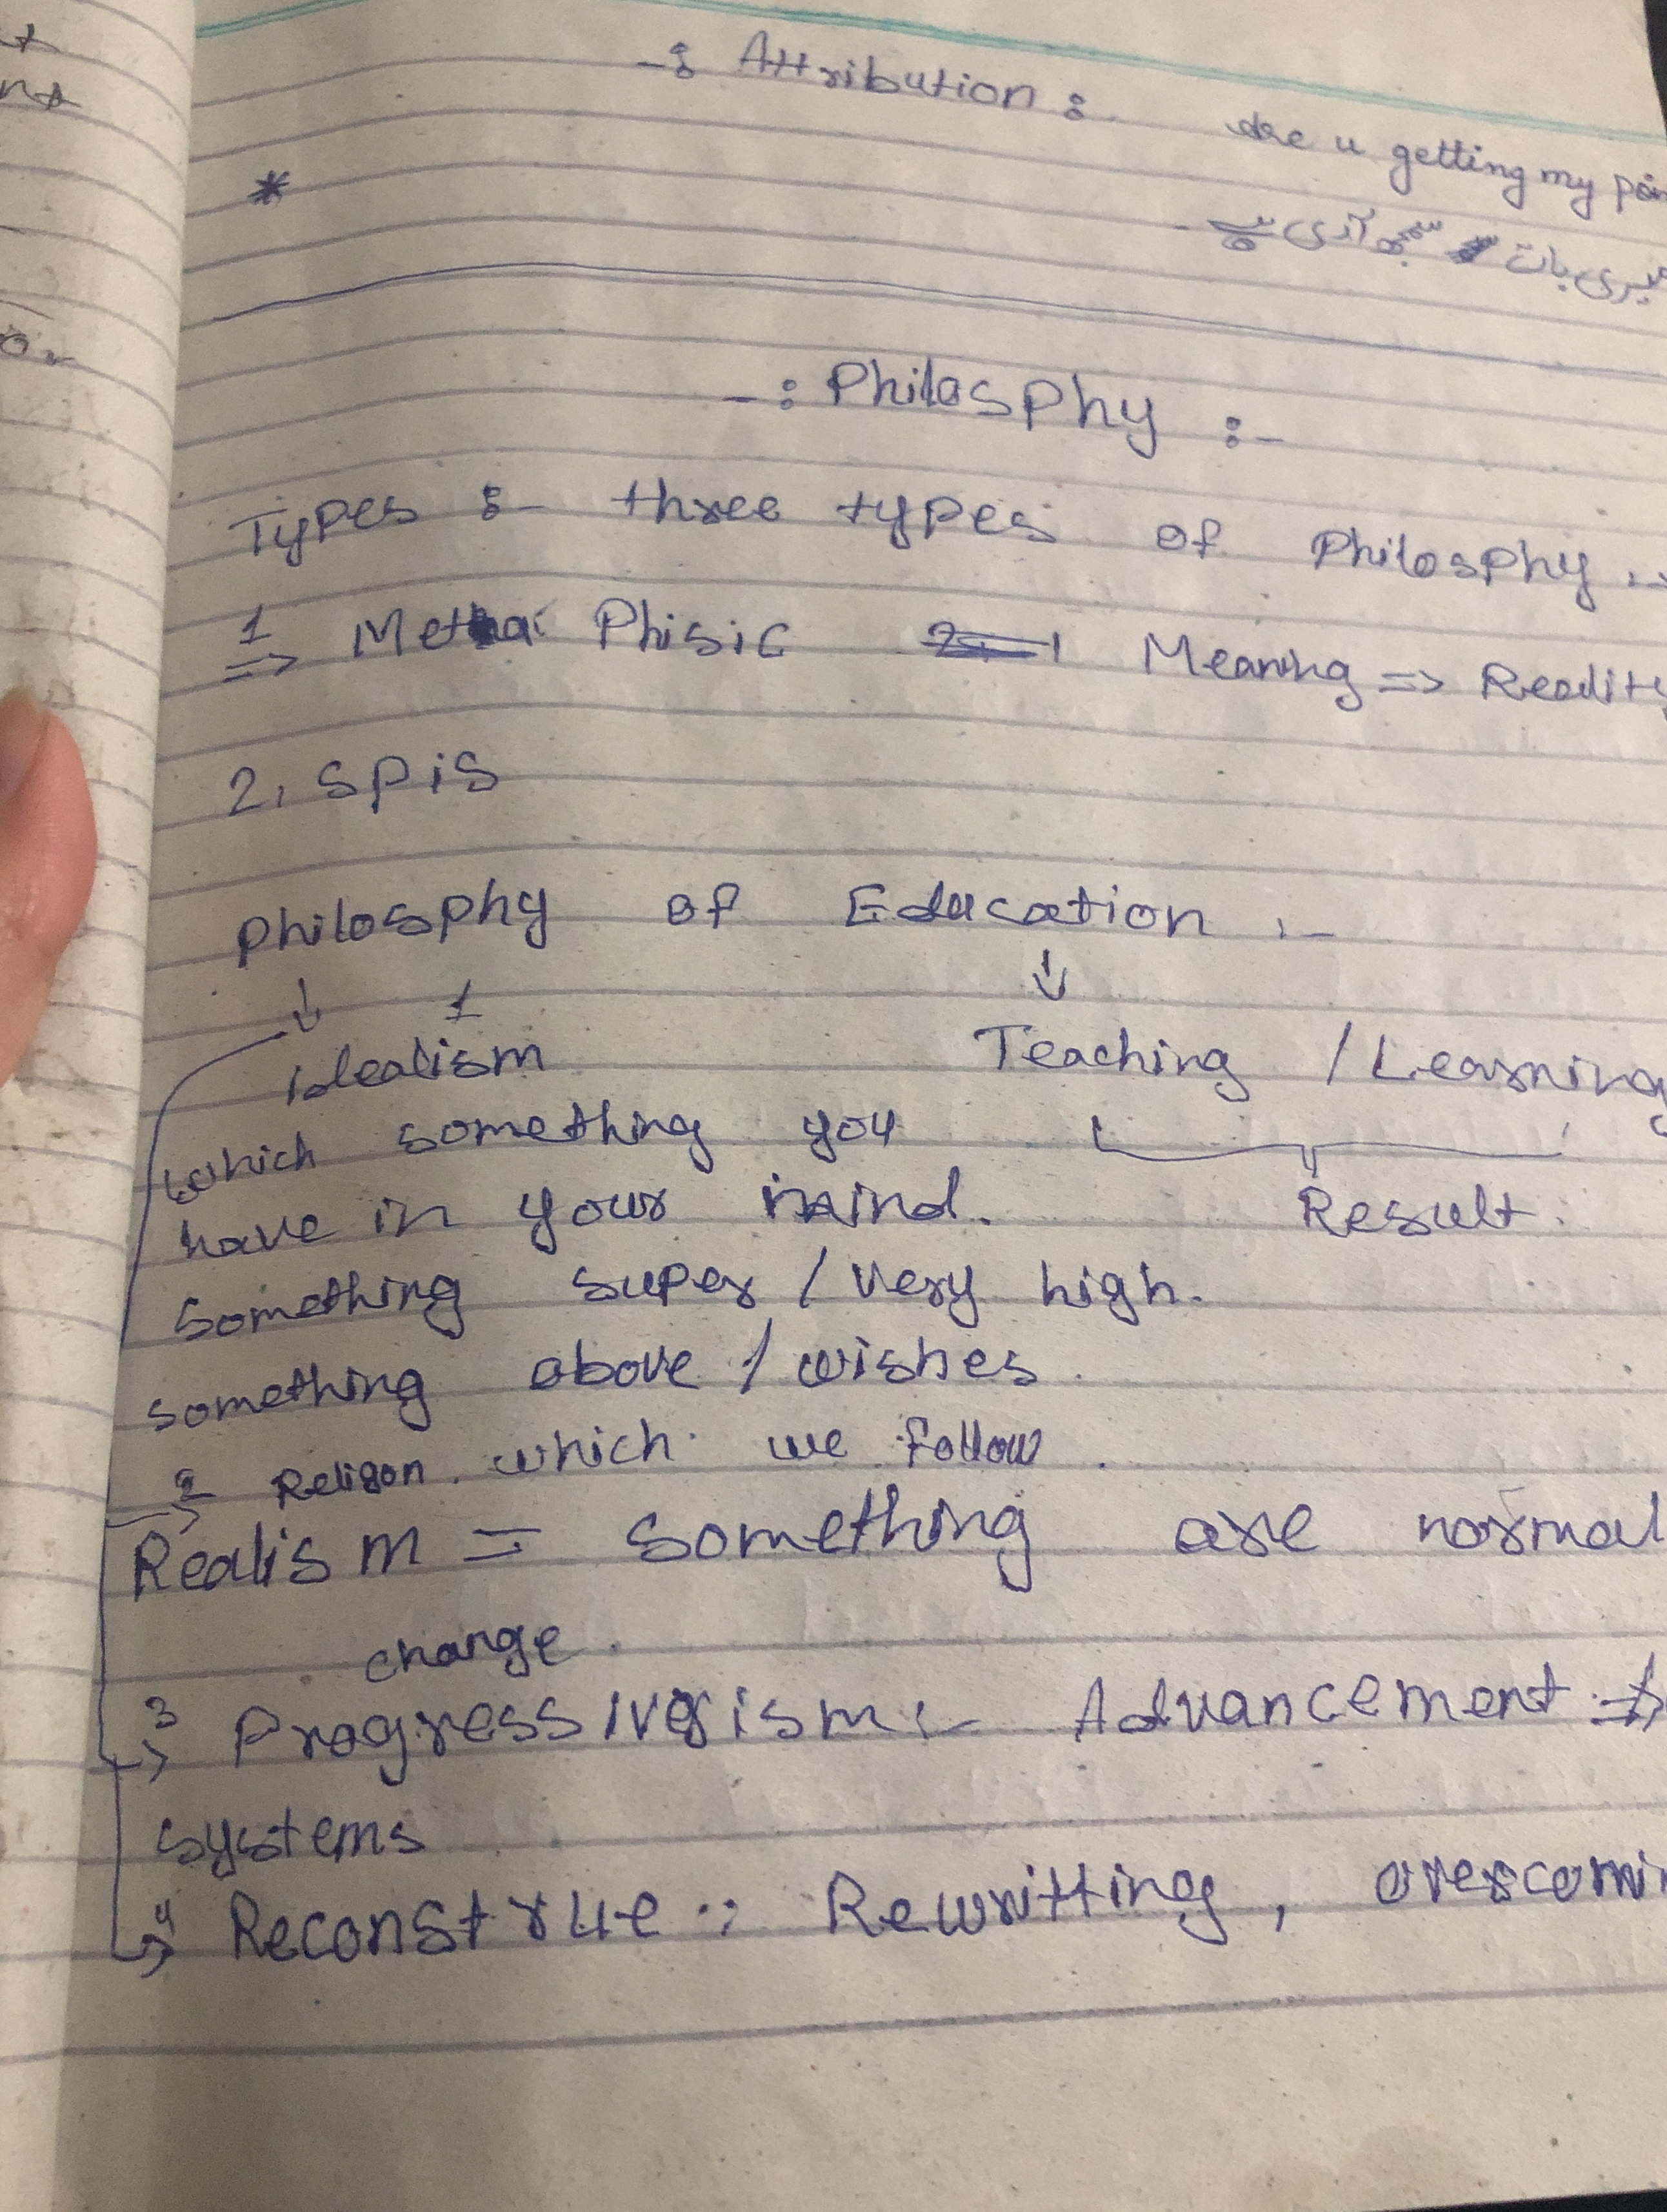 -: Attribution :
are u getting my poin
میری بات سمجھ آرہی ہے -
*
-: Philosphy :-
Types :- three types of Philosphy :-
1 => Metha Phisic Meaning => Reality
2. spis
Philosphy of Education :-
↓ 1 ↓
idealism Teaching / Learning
which something you
have in your mind. Result.
something super / very high.
something above / wishes.
2 Religon. which we follow.
Realism = something are normal
change.
3 Progressivism :- Advancement =>
systems
4 Reconstrue :: Rewritting, overcomin